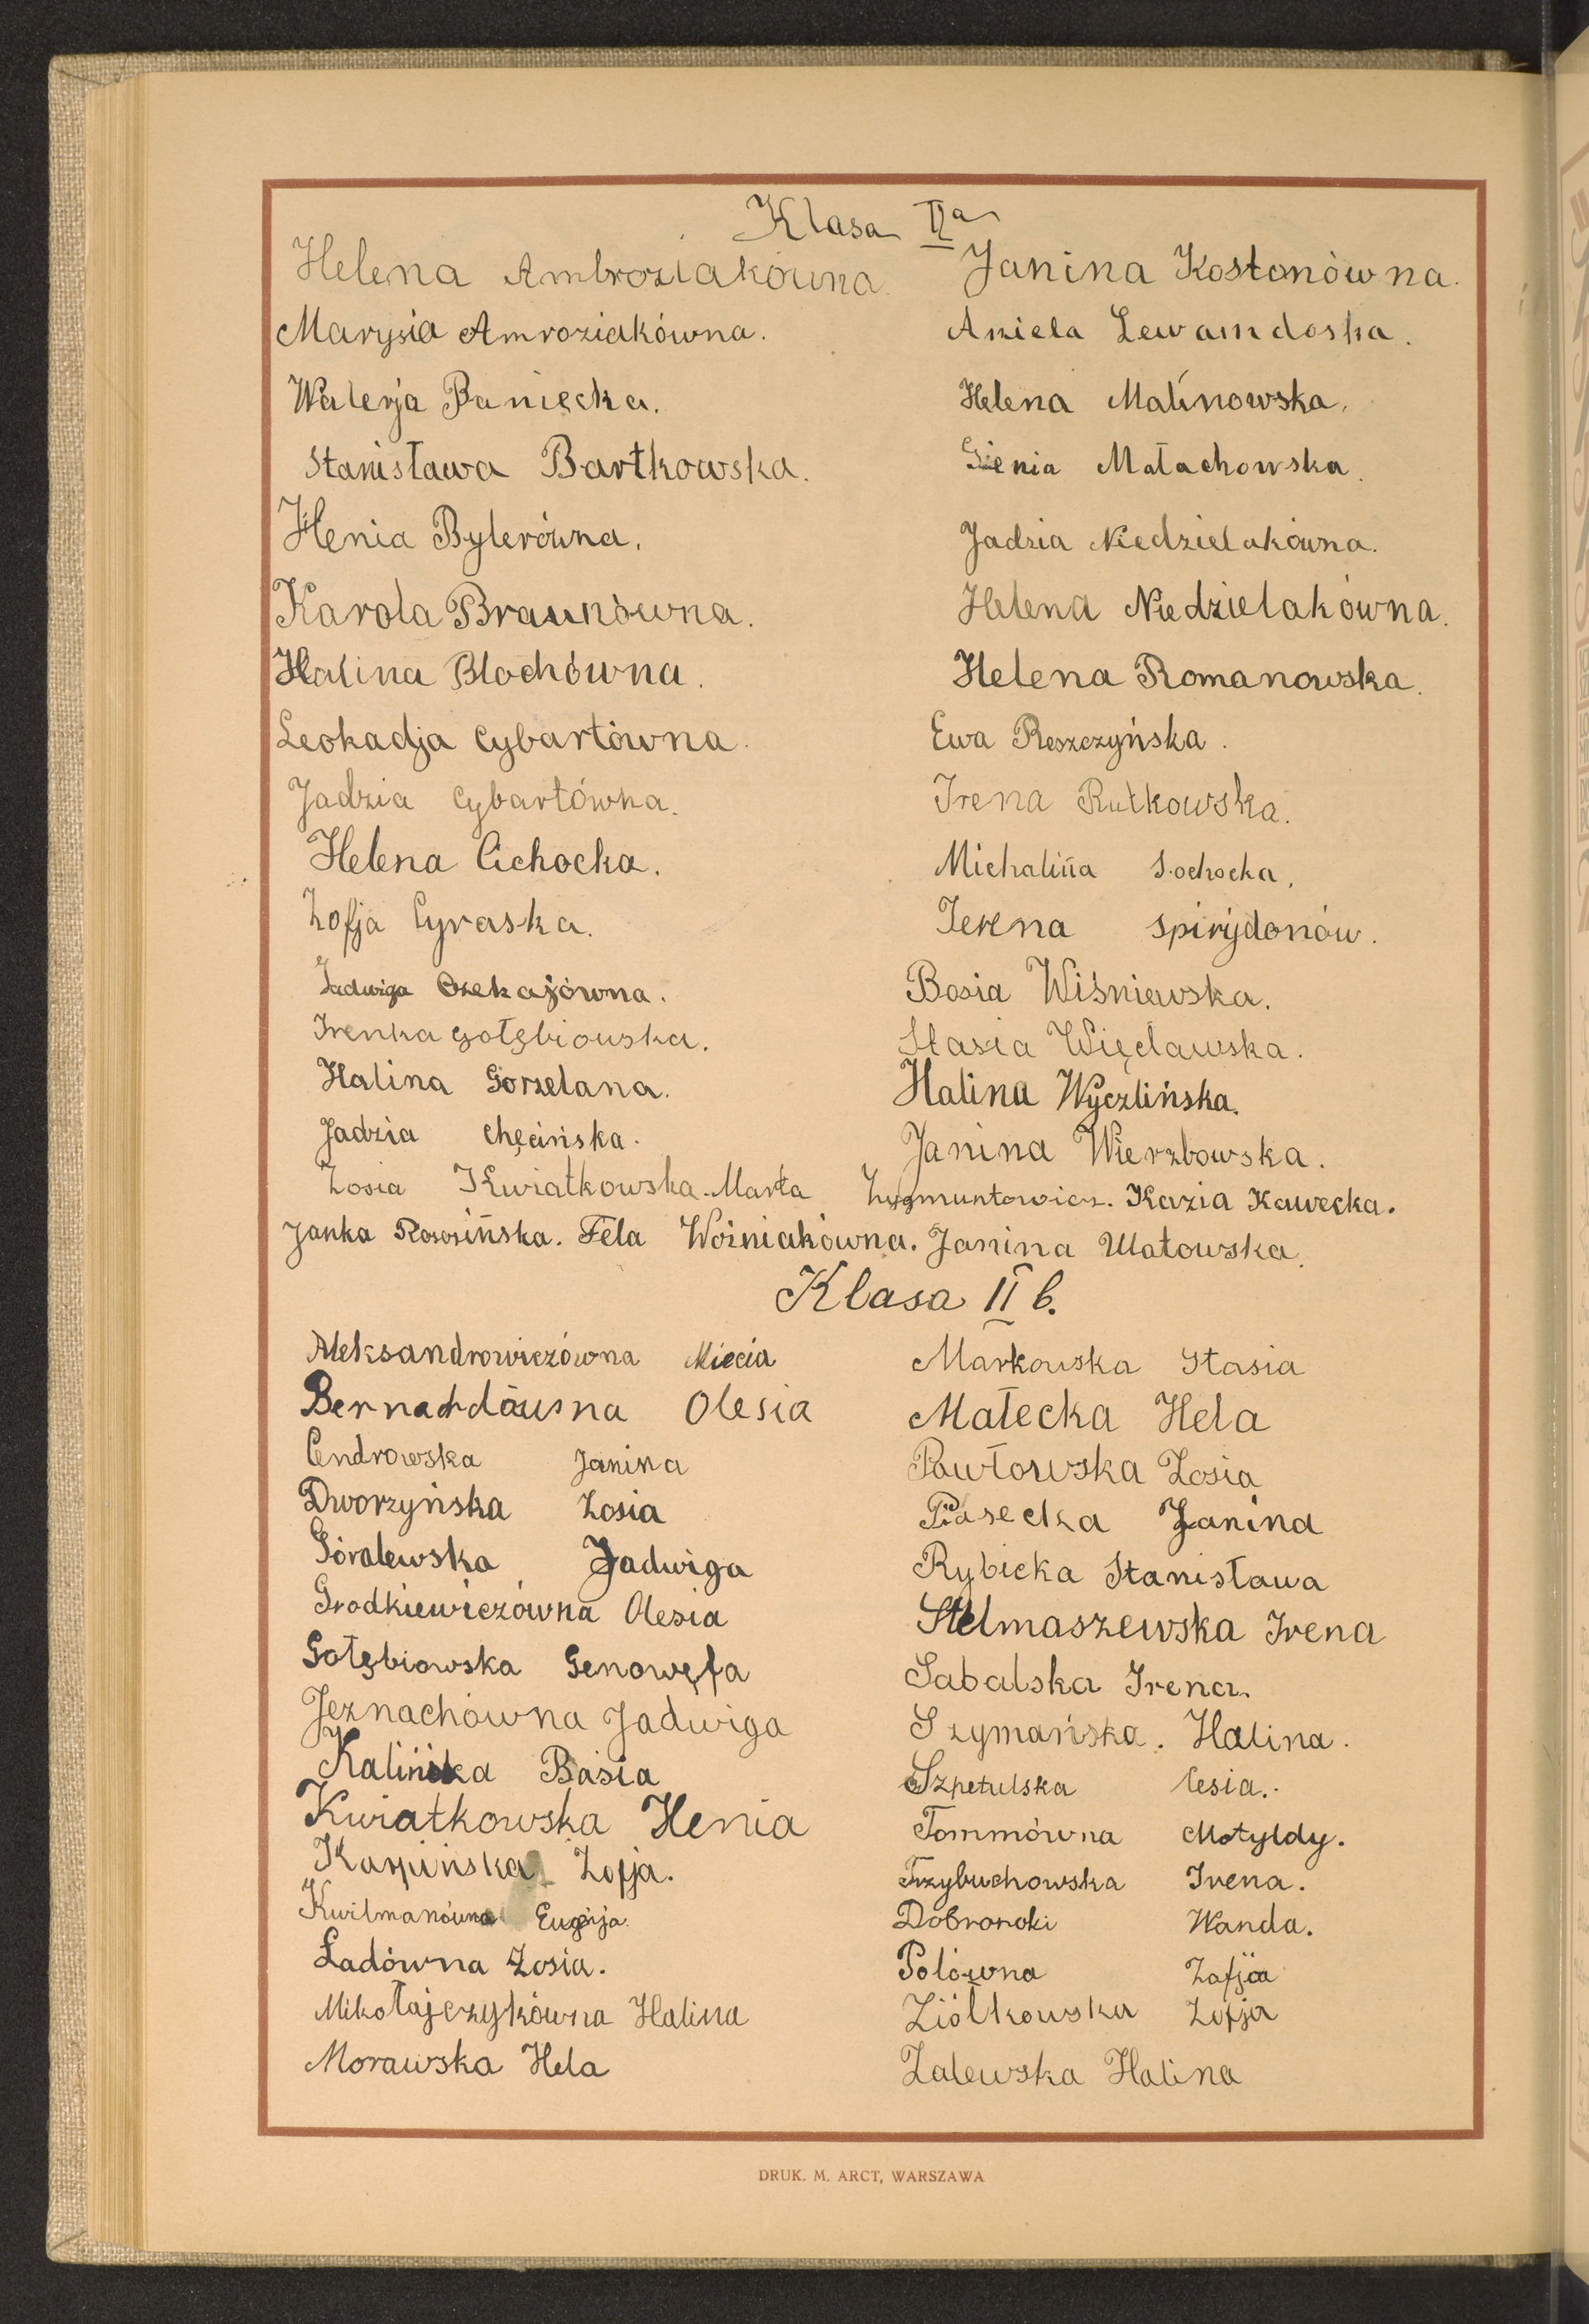 Klasa IIa
Helena Ambroziakówna.
Marysia Amroziakówna.
Walerja Baniecka.
Stanisława Bartkowska.
Henia Bylerówna.
Karola Braunówna.
Halina Blochówna.
Leokadja Cybartówna.
Jadzia Cybartówna.
Helena Cichocka.
Zofja Cyraska.
Jadwiga Czekajówna.
Irenka Gołębiowska.
Halina Gorzelana.
Jadzia Chęcińska.
Janina Kostonówna.
Aniela Lewamdoska.
Helena Malinowska.
Gienia Małachowska.
Jadzia Niedzielakówna.
Helena Niedzielakówna.
Helena Romanowska.
Ewa Reszczyńska.
Irena Rutkowska.
Michalina Sochocka.
Irena Spirydonów.
Basia Wiśniewska.
Stasia Więcławska.
Halina Wyczlińska.
Janina Wierzbowska.
Zosia Kwiatkowska. Marta Zygmuntowicz. Kazia Kawecka.
Janka Rososińska. Fela Woźniakówna. Janina Ulatowska.
Klasa II b.
Aleksandrowiczówna Miecia
Bernardówna Olesia
Cendrowska Janina
Dworzyńska Zosia
Góralewska Jadwiga
Grodkiewiczówna Olesia
Gołębiowska Genowęfa
Jeznachówna Jadwiga
Kalińska Basia
Kwiatkowska Henia
Karpińska Zofja.
Kwilmanówna Eugenja.
Ładówna Zosia.
Mikołajczykówna Halina
Morawska Hela
Markowska Stasia
Małecka Hela
Pawłowska Zosia
Piasecka Janina
Rybicka Stanisława
Stelmaszewska Irena
Sabalska Irena.
Szymańska. Halina.
Szpetulska Cesia.
Tommówna Motyldy.
Trzybuchowska Irena.
Dobronoki Wanda.
Polówna Zofja
Ziółkowska Zofja
Zalewska Halina
DRUK. M. ARCT, WARSZAWA